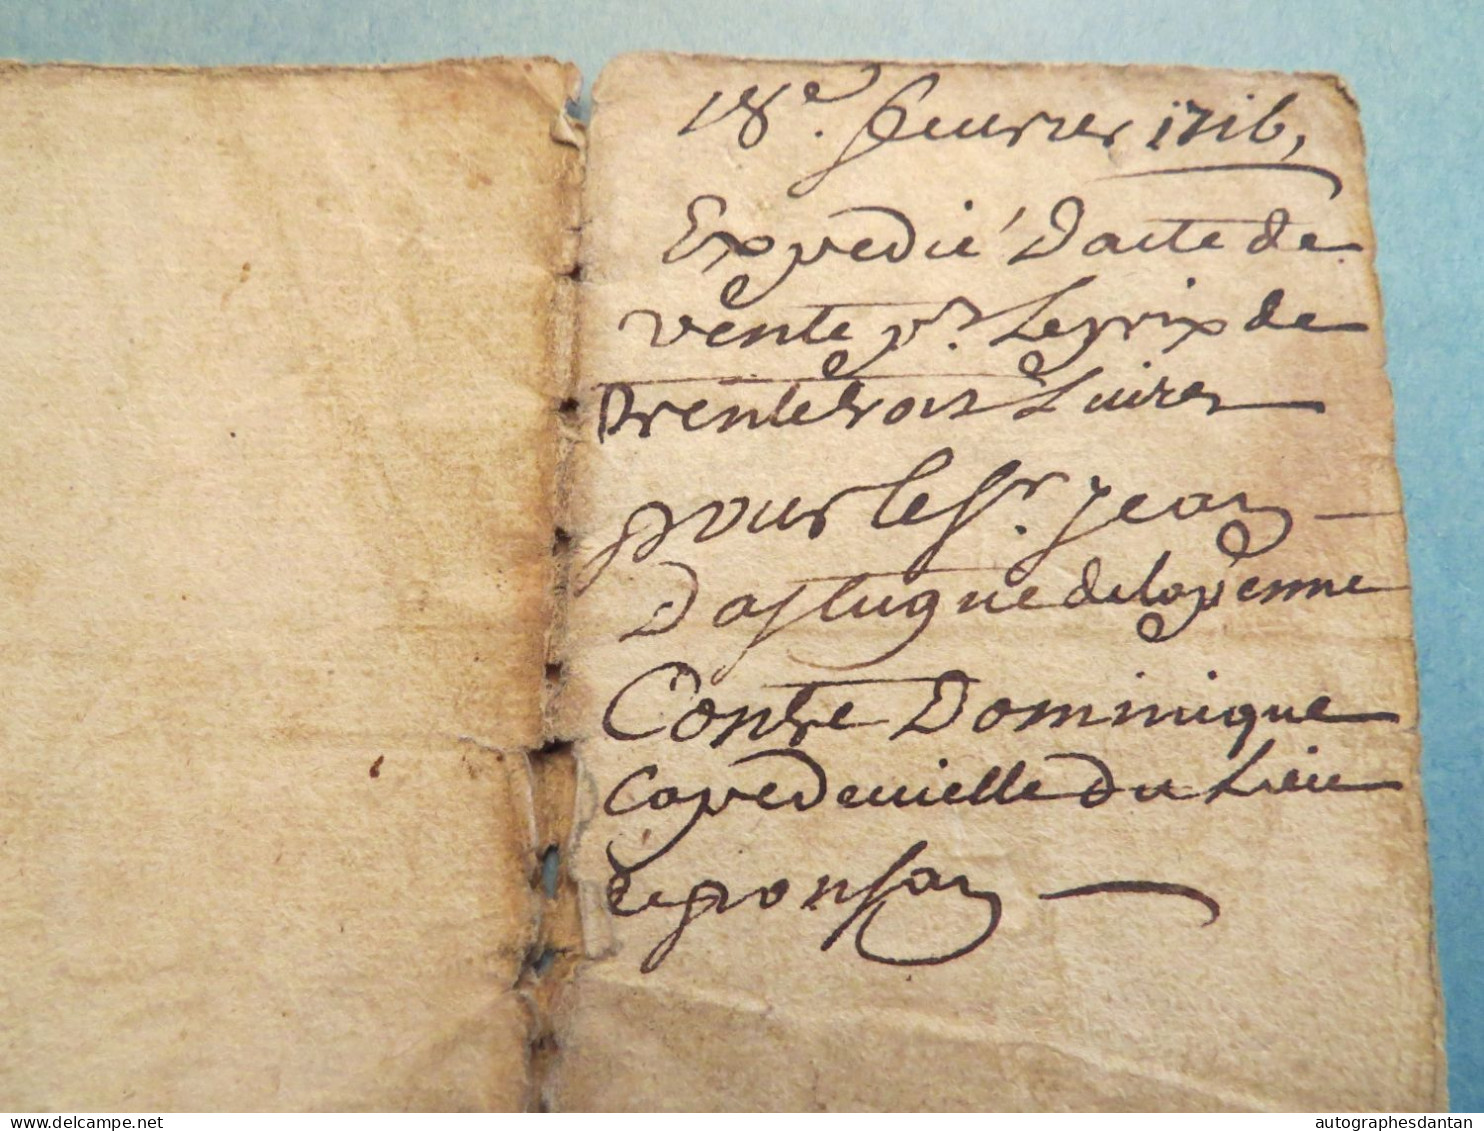 18e. feurier 1716,
Expedié Dacte de
vente pr. Le prix de
Trentetrois Liures
pour le Sr. jean
Dastugue delayenne
Contre Dominique
Capedeuielle du Lieu
de ponsan
delcampe.net
autographesdantan